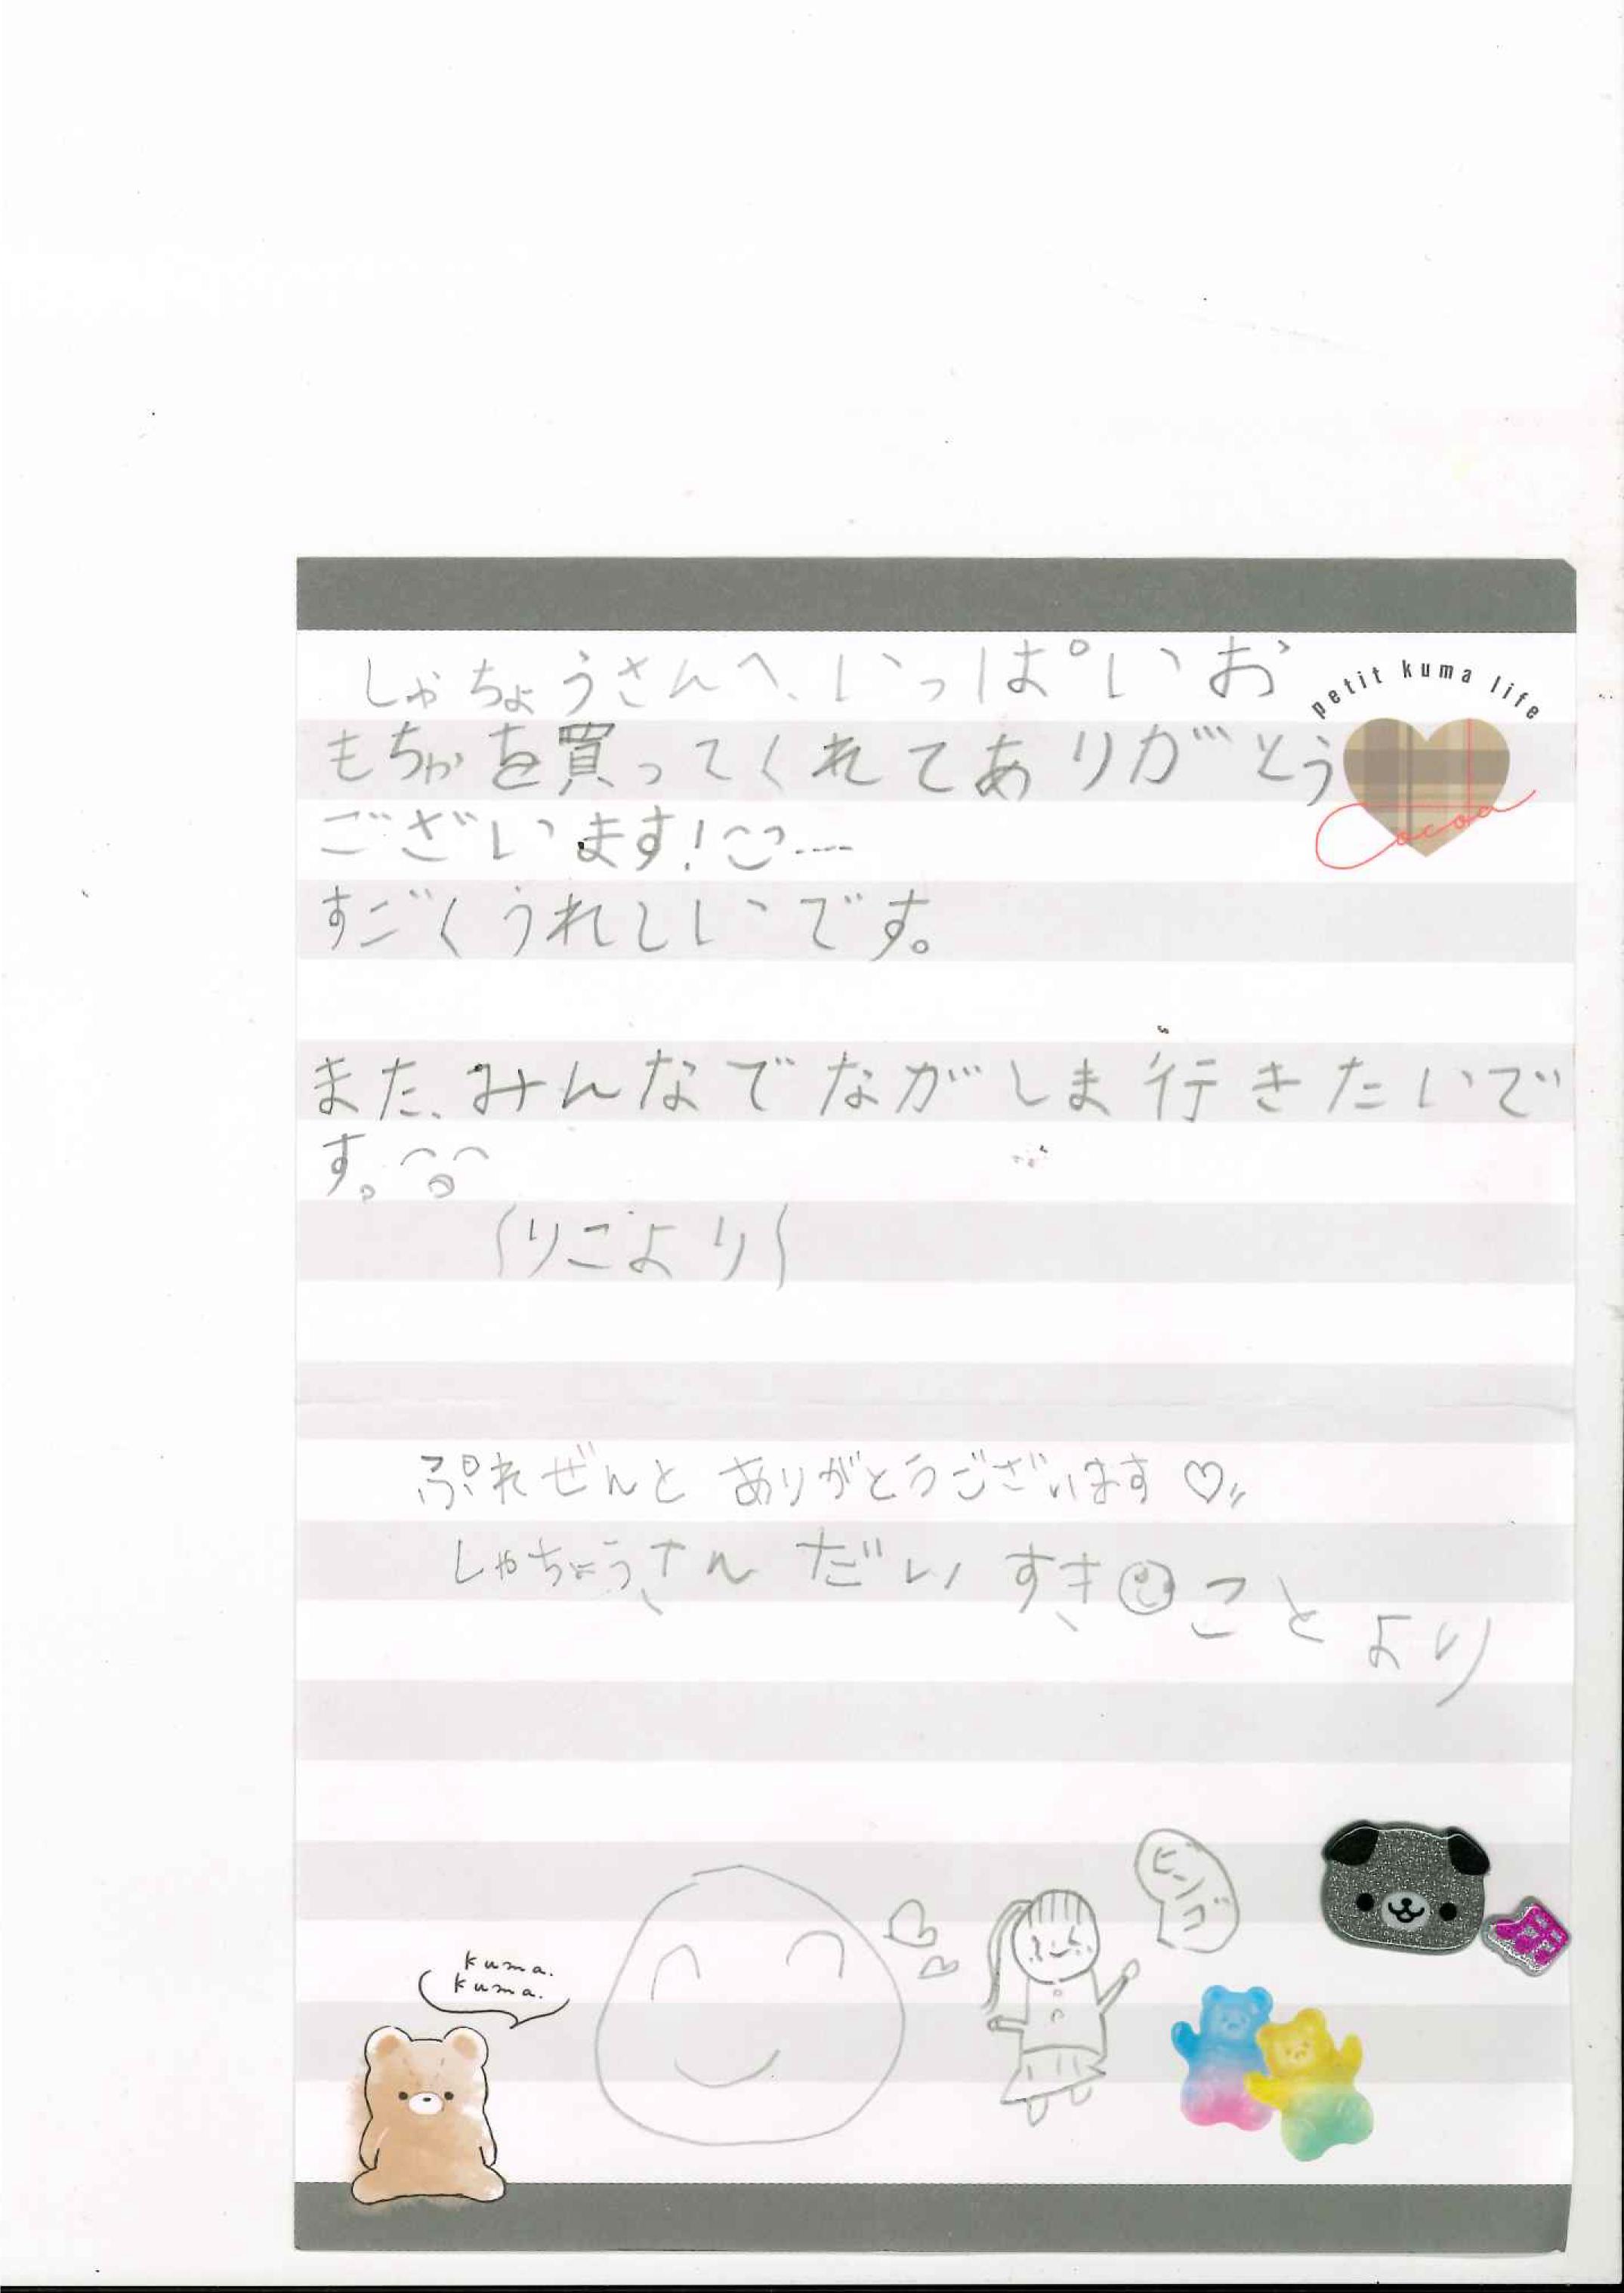 しゃちょうさんへ、いっぱいお
もちゃを買ってくれてありがとう
ございます!
すごくうれしいです。
また、みんなでながしま行きたいで
す。
(りこより)
ぷれぜんと ありがとうございます♡
しゃちょうさん だいすき
ことより
petit kuma life
Cocoa
kuma.
kuma.